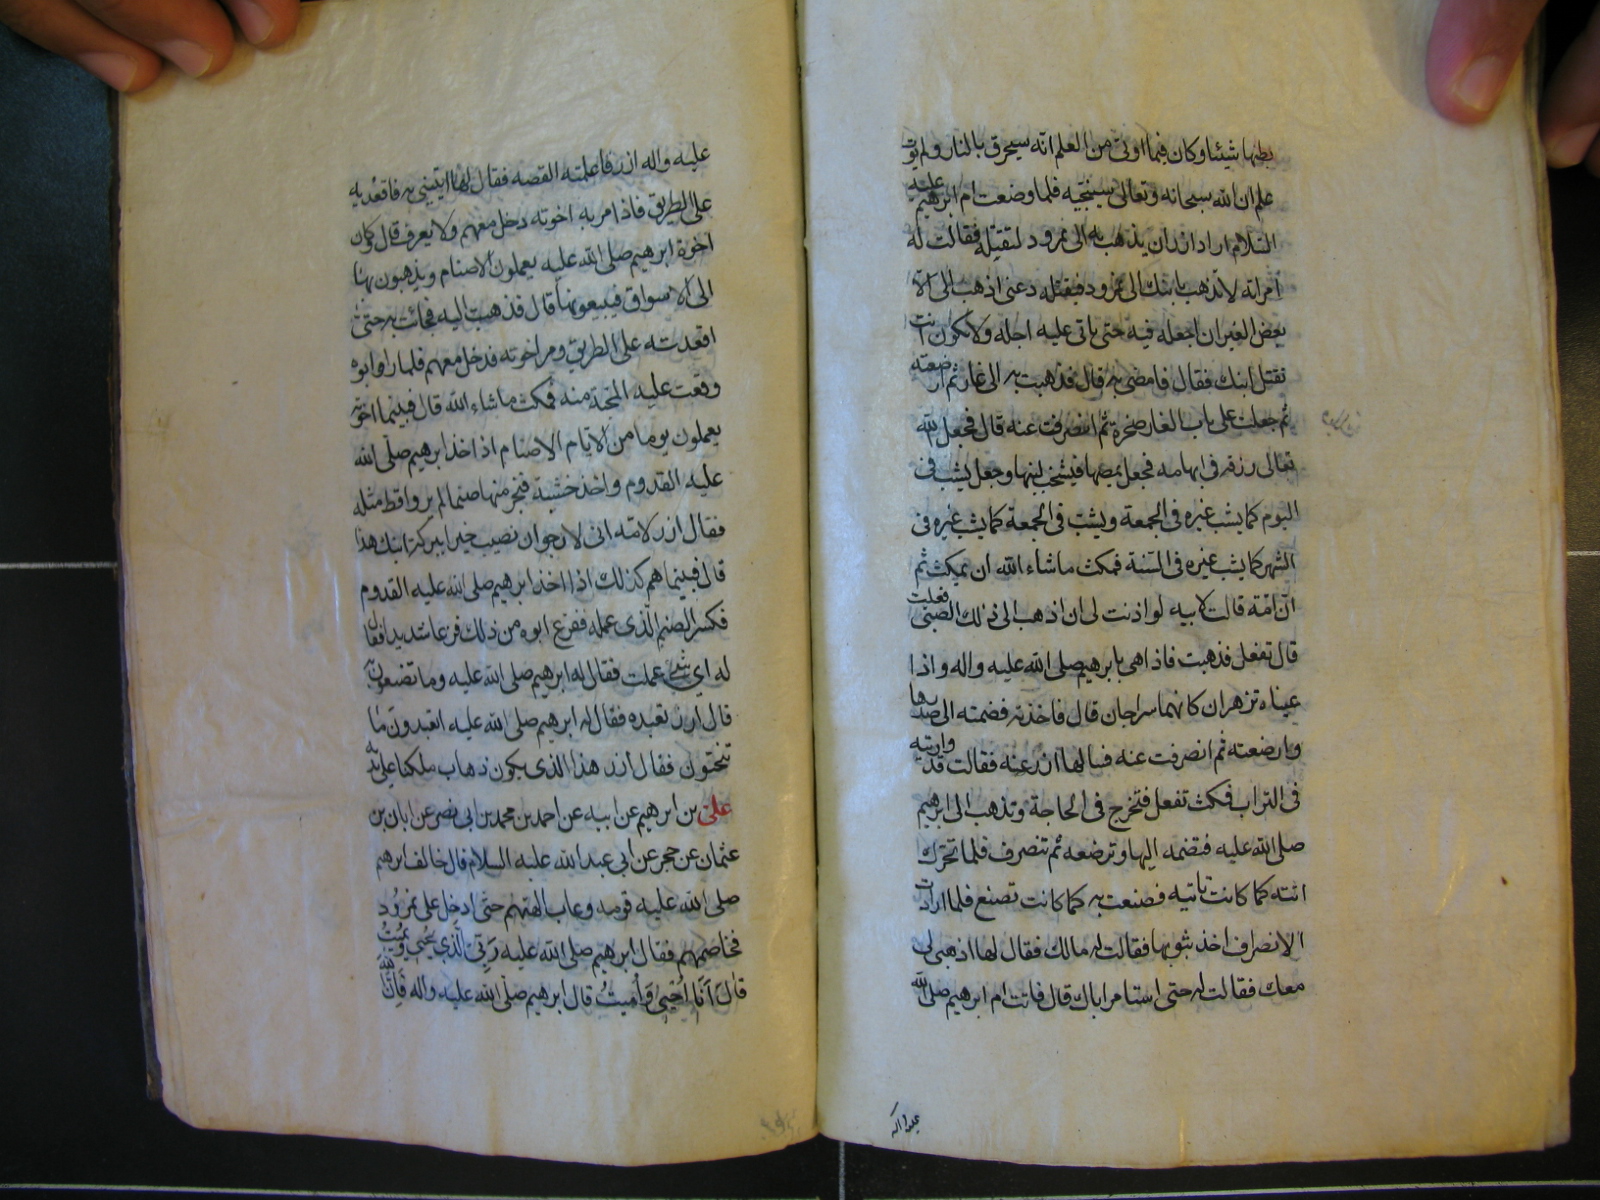 بطنها شيئا وكان فيما اوتى من العلم انه سيحرق بالنار ولم يؤت
علم ان الله سبحانه وتعالى سينجيه فلما وضعت ام ابرهيم عليه
السلام اراد ازر ان يذهب به الى نمرود ليقتله فقالت له
امراته لا تذهب بابنك الى نمرود فيقتله دعنى اذهب الى
بعض الغيران اجعله فيه حتى ياتى عليه اجله ولا تكون انت
تقتل ابنك فقال فامضى به قال فذهبت به الى غار ثم ارضعته
ثم جعلت على باب الغار صخرة ثم انصرفت عنه قال فجعل الله
تعالى رزقه فى ابهامه فجعل يمصها فيشخب لبنها وجعل يشب فى
اليوم كما يشب غيره فى الجمعة ويشب فى الجمعة كما يشب غيره فى
الشهر كما يشب غيره فى السنة فمكث ماشاء الله ان يمكث ثم
ان امه قالت لابيه لو اذنت لى ان اذهب الى ذلك الصبى فعلت
قال تفعل فذهبت فاذا هى بابرهيم صلى الله عليه واله واذا
عيناه تزهران كانهما سراجان قال فاخذته فضمته الى صدرها
وارضعته ثم انصرفت عنه فسالها ازر عنه فقالت قد واريته
فى التراب فمكث تفعل فتخرج فى الحاجة وتذهب الى ابرهيم
صلى الله عليه فتضمه اليها وترضعه ثم تنصرف فلما تحرك
اتته كما كانت تاتيه فصنعت به كما كانت تصنع فلما ارادت
الانصراف اخذ بثوبها فقالت له مالك فقال لها اذهبى بى
معك فقالت له حتى استامر اباك قال فاتت ام ابرهيم صلى الله
عليه واله
عليه واله ازر فاعلمته القصه فقال لها ايتينى به فاقعديه
على الطريق فاذا مر به اخوته دخل معهم ولا يعرف قال وكان
اخوة ابرهيم صلى الله عليه يعملون الاصنام ويذهبون بها
الى الاسواق فيبيعونها قال فذهبت اليه فجائت به حتى
اقعدته على الطريق ومر اخوته فدخل معهم فلما راه ابوه
وقعت عليه المحبة منه فمكث ماشاء الله قال فبينما اخوته
يعملون يوما من الايام الاصنام اذ اخذ ابرهيم صلى الله
عليه القدوم واخذ خشبة فنجر منها صنما لم يروا قط مثله
فقال ازر لامه انى لارجو ان نصيب خيرا ببركة ابنك هذا
قال فبينما هم كذلك اذا اخذ ابرهيم صلى الله عليه القدوم
فكسر الصنم الذى عمله ففزع ابوه من ذلك فزعا شديدا فقال
له اى شىء عملت فقال له ابرهيم صلى الله عليه وما تصنعون به
قال ازر نعبده فقال له ابرهيم صلى الله عليه اتعبدون ما
تنحتون فقال ازر هذا الذى يكون ذهاب ملكنا على يديه
على بن ابرهيم عن ابيه عن احمد بن محمد بن ابى نصر عن ابان بن
عثمان عن حجر عن ابى عبد الله عليه السلام قال خالف ابرهيم
صلى الله عليه قومه وعاب الهتهم حتى ادخل على نمرود
فخاصمهم فقال ابرهيم صلى الله عليه رَبِّىَ الَّذى يُحْيى ويُميتُ
قالَ اَنَا اُحْيى وَاُميتُ قال ابرهيم صلى الله عليه واله فَاِنَّ اللهَ